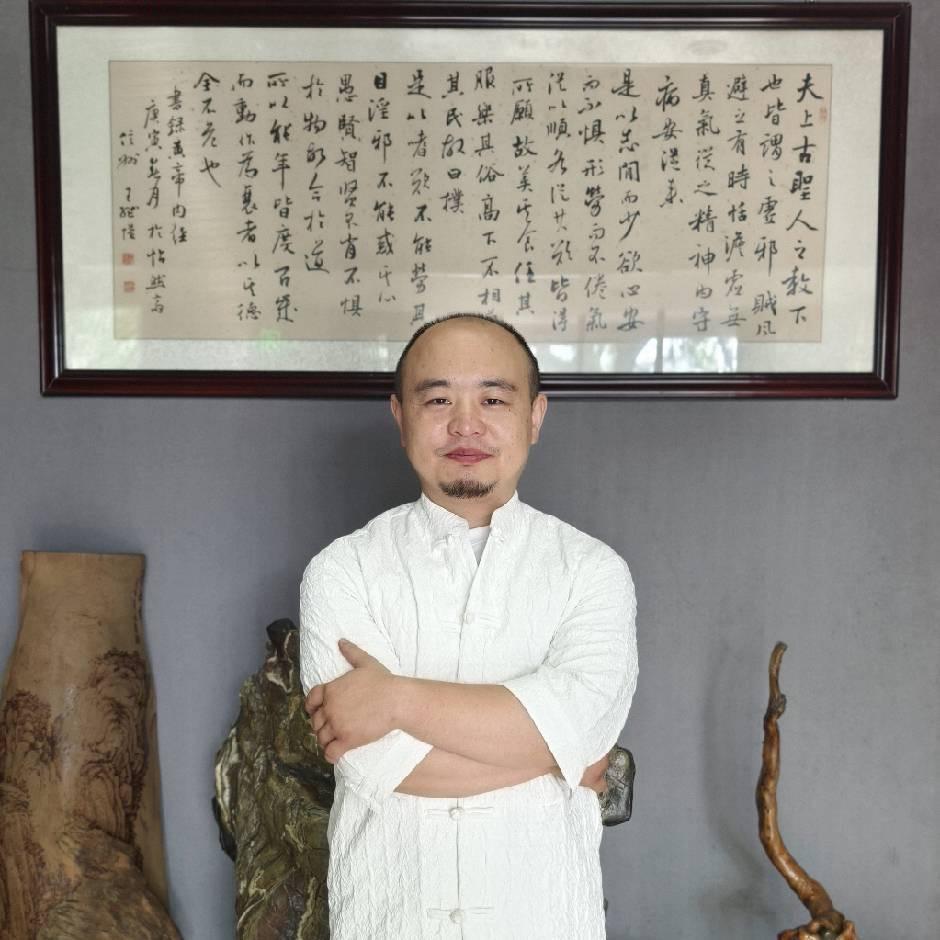 夫上古聖人之教下
也皆謂之虛邪賊風
避之有時恬澹虛無
真氣從之精神內守
病安從來
是以志閒而少欲心安
而不懼形勞而不倦氣
從以順各從其欲皆得
所願故美其食任其
服樂其俗高下不相
其民故曰樸
是以者欲不能勞其
目淫邪不能惑其心
愚賢智賢不肖不懼
於物故合於道
所以能年皆度百歲
而動作為衰者以其德
全不危也
書錄黃帝內經
庚寅 月於怡然
王